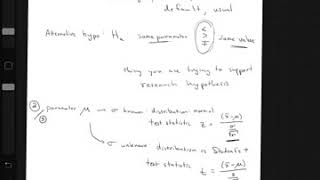 default, usual
Alternative hypo: Ha same parameter < > ≠ same value
thing you are trying to support
research hypothesis
② parameter μ → σ known: distribution normal
test statistic z = (x̄-μ) / σ/√n
σ unknown distribution is Students t
test statistic = (x̄-μ)